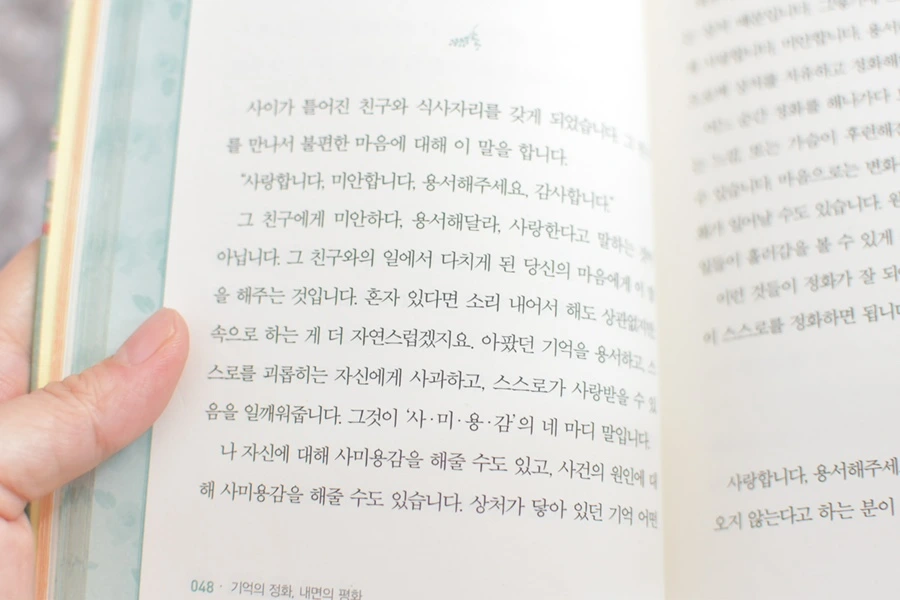 사이가 틀어진 친구와 식사자리를 갖게 되었습니다. 그
를 만나서 불편한 마음에 대해 이 말을 합니다.
“사랑합니다, 미안합니다, 용서해주세요, 감사합니다.”
그 친구에게 미안하다, 용서해달라, 사랑한다고 말하는
아닙니다. 그 친구와의 일에서 다치게 된 당신의 마음에게 이
을 해주는 것입니다. 혼자 있다면 소리 내어서 해도 상관없지만,
속으로 하는 게 더 자연스럽겠지요. 아팠던 기억을 용서하고, 스
스로를 괴롭히는 자신에게 사과하고, 스스로가 사랑받을 수 있
음을 일깨워줍니다. 그것이 ‘사·미·용·감’의 네 마디 말입니다.
나 자신에 대해 사미용감을 해줄 수도 있고, 사건의 원인에 대
해 사미용감을 해줄 수도 있습니다. 상처가 닿아 있던 기억 어떤
048 · 기억의 정화, 내면의 평화
미안합니다, 용서
정화해
어느 순간 정화를 해나가다
는 느낌, 또는 가슴이 후련해
수 있습니다. 마음으로는 변화
화가 일어날 수도 있습니다.
일들이 흘러감을 볼 수 있게
이런 것들이 정화가 잘 되
이 스스로를 정화하면 됩니다
사랑합니다, 용서해주세
오지 않는다고 하는 분이